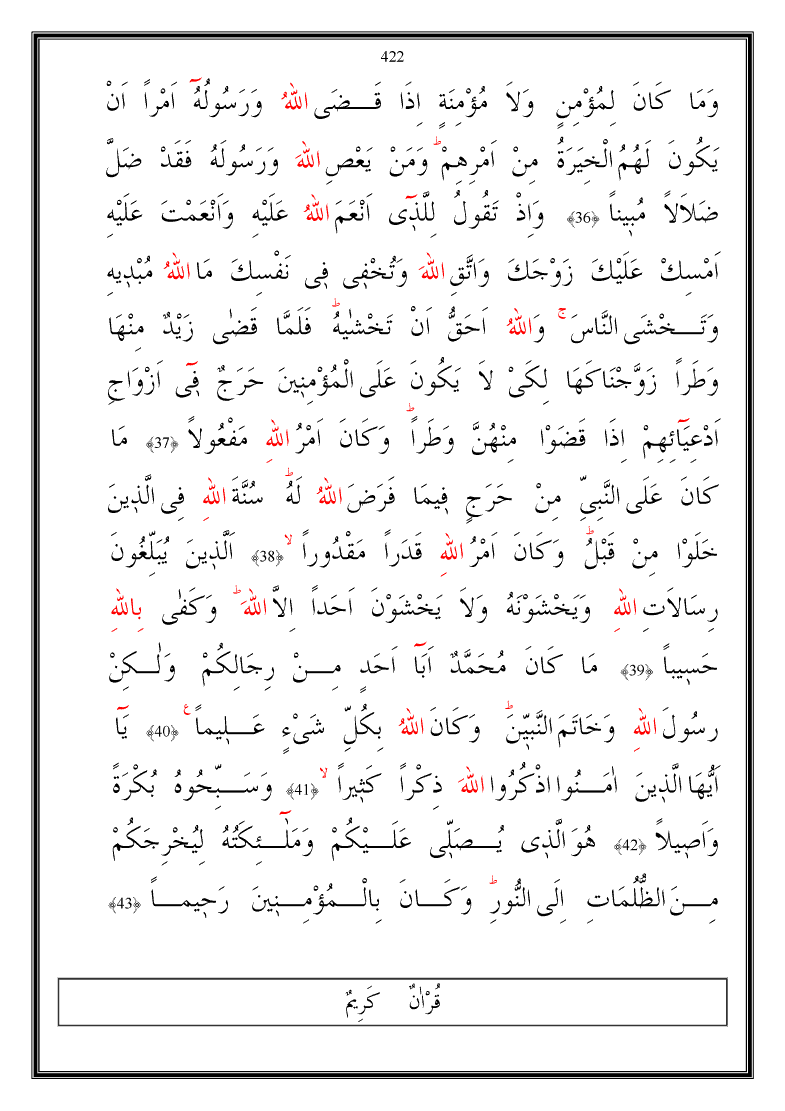 422
وَمَا كَانَ لِمُؤْمِنٍ وَلاَ مُؤْمِنَةٍ اِذَا قَـــضَى اللهُ وَرَسُولُهُٓ اَمْراً اَنْ
يَكُونَ لَهُمُ الْخِيَرَةُ مِنْ اَمْرِهِمْۜ وَمَنْ يَعْصِ اللهَ وَرَسُولَهُ فَقَدْ ضَلَّ
ضَلاَلاً مُبٖيناً ﴿36﴾ وَاِذْ تَقُولُ لِلَّذٖٓى اَنْعَمَ اللهُ عَلَيْهِ وَاَنْعَمْتَ عَلَيْهِ
اَمْسِكْ عَلَيْكَ زَوْجَكَ وَاتَّقِ اللهَ وَتُخْفٖى فٖى نَفْسِكَ مَا اللهُ مُبْدٖيهِ
وَتَـــخْشَى النَّاسَۚ وَاللهُ اَحَقُّ اَنْ تَخْشٰيهُۜ فَلَمَّا قَضٰى زَيْدٌ مِنْهَا
وَطَراً زَوَّجْنَاكَهَا لِكَىْ لاَ يَكُونَ عَلَى الْمُؤْمِنٖينَ حَرَجٌ فٖٓى اَزْوَاجِ
اَدْعِيَٓائِهِمْ اِذَا قَضَوْا مِنْهُنَّ وَطَراًۜ وَكَانَ اَمْرُ اللهِ مَفْعُولاً ﴿37﴾ مَا
كَانَ عَلَى النَّبِىِّ مِنْ حَرَجٍ فٖيمَا فَرَضَ اللهُ لَهُۜ سُنَّةَ اللهِ فِى الَّذٖينَ
خَلَوْا مِنْ قَبْلُۜ وَكَانَ اَمْرُ اللهِ قَدَراً مَقْدُوراًۙ ﴿38﴾ اَلَّذٖينَ يُبَلِّغُونَ
رِسَالاَتِ اللهِ وَيَخْشَوْنَهُ وَلاَ يَخْشَوْنَ اَحَداً اِلاَّ اللهَۜ وَكَفٰى بِاللهِ
حَسٖيباً ﴿39﴾ مَا كَانَ مُحَمَّدٌ اَبَٓا اَحَدٍ مِـــنْ رِجَالِكُمْ وَلٰـــكِنْ
رسُولَ اللهِ وَخَاتَمَ النَّبِيّٖنَۜ وَكَانَ اللهُ بِكُلِّ شَىْءٍ عَـــلٖيماًع ﴿40﴾ يَٓا
اَيُّهَا الَّذٖينَ اٰمَـــنُوا اذْكُرُوا اللهَ ذِكْراً كَثٖيراًۙ ﴿41﴾ وَسَـــبِّحُوهُ بُكْرَةً
وَاَصٖيلاً ﴿42﴾ هُوَ الَّذٖى يُـــصَلّٖى عَلَـــيْكُمْ وَمَلٰٓـــئِكَتُهُ لِيُخْرِجَكُمْ
مِـــنَ الظُّلُمَاتِ اِلَى النُّورِۜ وَكَـــانَ بِالْـــمُؤْمِـــنٖينَ رَحٖيمـــاً ﴿43﴾
قُرْاٰنٌ كَرِيمٌ